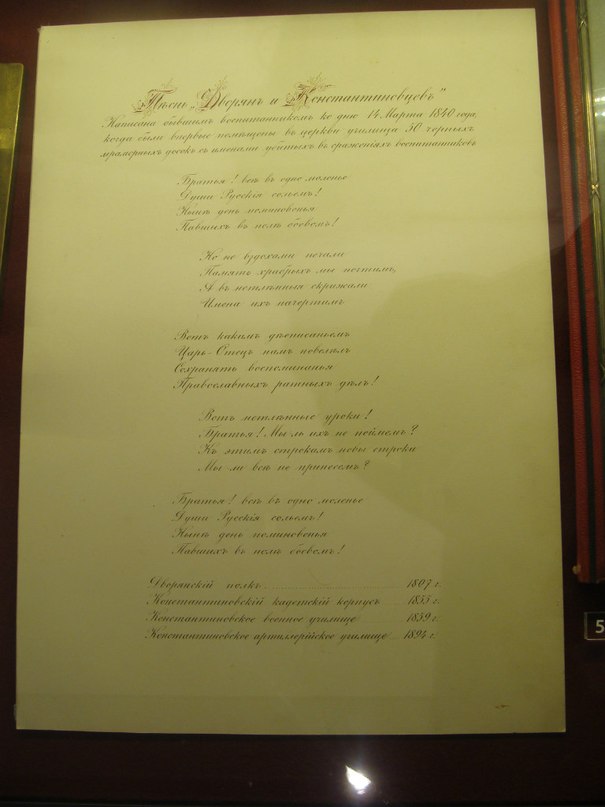 Пѣснь „Дворянъ и Константиновцевъ"
Написана бывшимъ воспитанникомъ ко дню 14 Марта 1840 года,
когда были впервые помѣщены въ церкви училища 50 черныхъ
мраморныхъ досокъ съ именами убитыхъ въ сраженіяхъ воспитанниковъ
Братья! всѣ въ одно моленье
Души Русскія сольемъ!
Нынѣ день поминовенья
Павшихъ въ полѣ боевомъ!
Но не вздохами печали
Память храбрыхъ мы почтимъ,
А въ нетлѣнныя скрижали
Имена ихъ начертимъ
Вотъ какимъ дѣеписаньемъ
Царь-Отецъ намъ повелѣлъ
Сохранять воспоминанья
Православныхъ ратныхъ дѣлъ!
Вотъ нетлѣнные уроки!
Братья! Мы ль ихъ не поймемъ?
Къ этимъ строкамъ новы строки
Мы ли всѣ не принесемъ?
Братья! всѣ въ одно моленье
Души Русскія сольемъ!
Нынѣ день поминовенья
Павшихъ въ полѣ боевомъ!
Дворянскій полкъ 1807 г.
Константиновскій кадетскій корпусъ 1855 г.
Константиновское военное училище 1859 г.
Константиновское артиллерійское училище 1894 г.
5